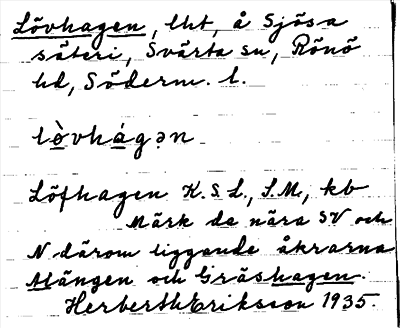 Lövhagen, lht, å Sjösa
säteri, Svärta sn, Rönö
hd, Söderm. l.
lòvhágən
Löfhagen K.S.L., S.M., kb
Märk de nära SV och
N därom liggande åkrarna
Alängen och Gräshagen.
Herberth Eriksson 1935.